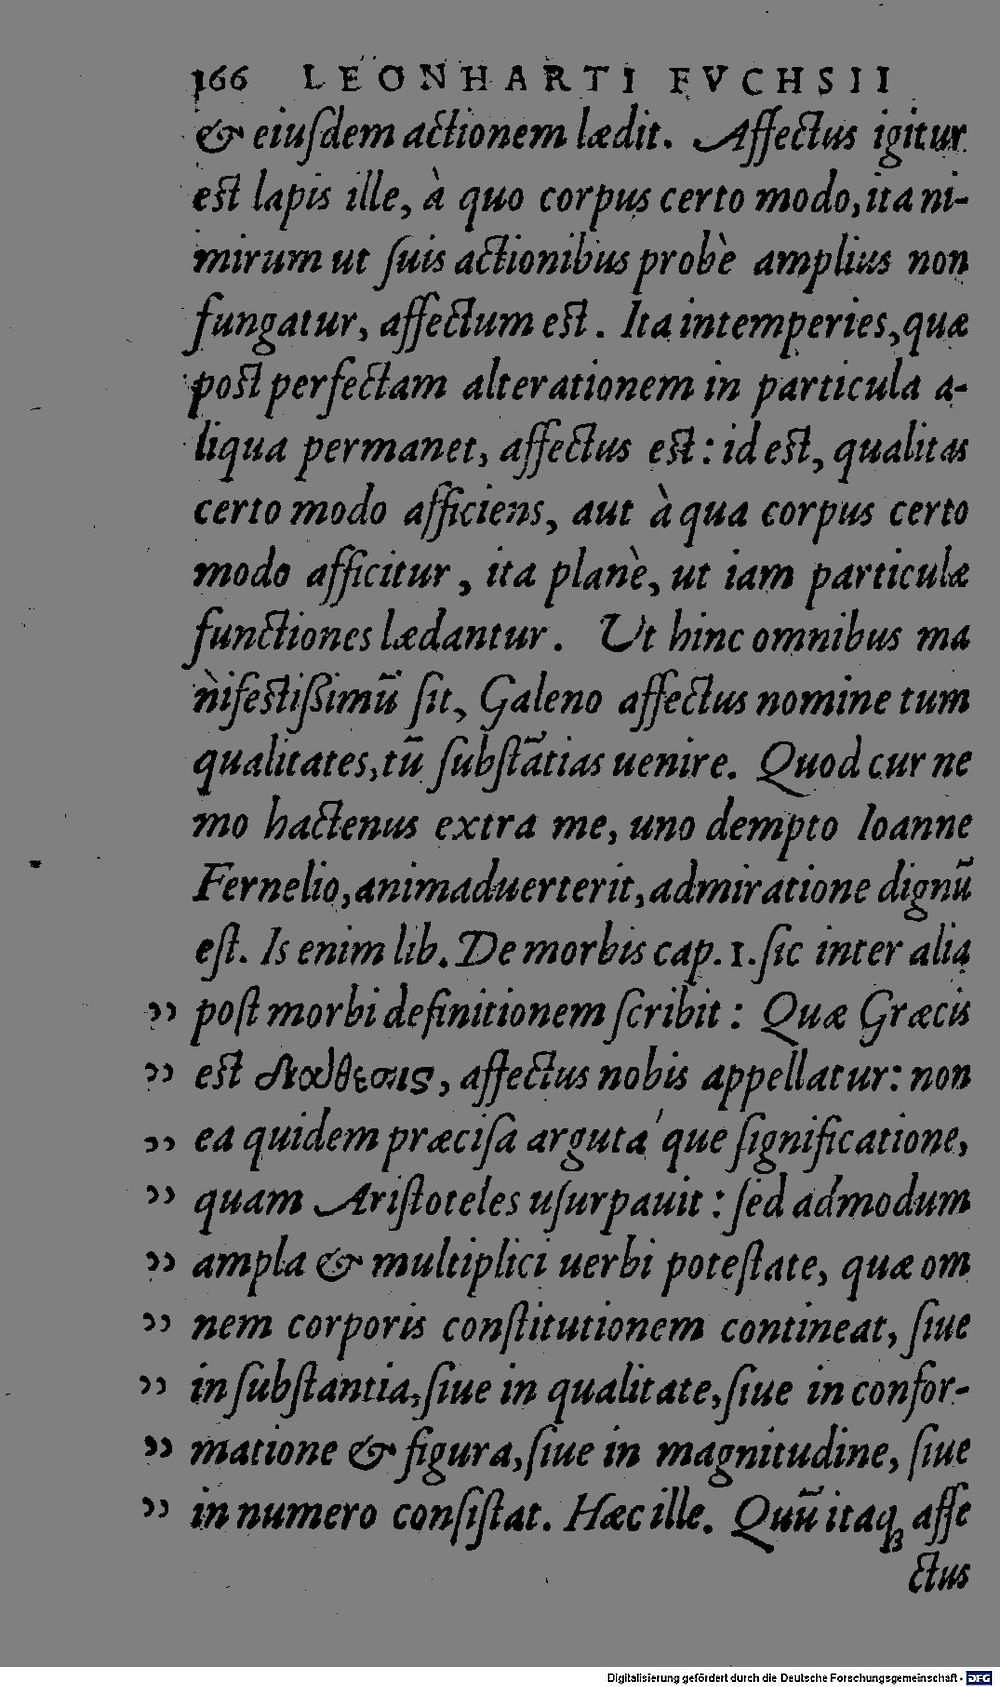 166 LEONHARTI FVCHSII
& eiuſdem actionem lædit. Affectus igitur
est lapis ille, à quo corpus certo modo, ita ni-
mirum ut ſuis actionibus probè amplius non
fungatur, affectum est. Ita intemperies, quæ
post perfectam alterationem in particula a-
liqua permanet, affectus est: id est, qualitas
certo modo afficiens, aut à qua corpus certo
modo afficitur, ita planè, ut iam particulæ
functiones lædantur. Ut hinc omnibus ma
nifestißimū ſit, Galeno affectus nomine tum
qualitates, tū ſubſtātias uenire. Quod cur ne
mo hactenus extra me, uno dempto Ioanne
Fernelio, animaduerterit, admiratione dignū
eſt. Is enim lib. De morbis cap. 1. ſic inter alia
„ poſt morbi definitionem ſcribit: Quæ Græcis
„ est διάθεσις, affectus nobis appellatur: non
„ ea quidem præciſa argutá que ſignificatione,
„ quam Ariſtoteles uſurpauit: ſed admodum
„ ampla & multiplici uerbi poteſtate, quæ om
„ nem corporis conſtitutionem contineat, ſiue
„ in ſubſtantia, ſiue in qualitate, ſiue in confor-
„ matione & figura, ſiue in magnitudine, ſiue
„ in numero conſiſtat. Hæc ille. Quū itaq; affe
ctus
Digitalisierung gefördert durch die Deutsche Forschungsgemeinschaft - DFG